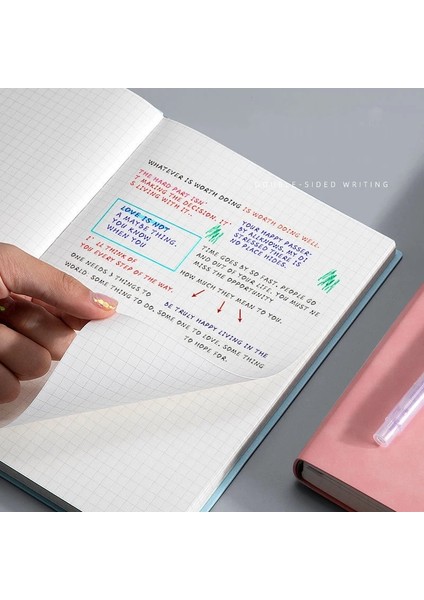 SIDED WRITING
WHATEVER IS WORTH DOING IS WORTH DOING WELL.
THE HARD PART ISN'
T MAKING THE DECISION. IT'
S LIVING WITH IT--
LOVE IS NOT
A MAYBE THING.
YOU KNOW
WHEN YOU
YOUR HAPPY PASSER-
BY ALLKNOWS, MY DI
STRESSED THERE IS
NO PLACE HIDES.
I' LL THINK OF
YOU EVERY STEP OF THE WAY.
TIME GOES BY SO FAST, PEOPLE GO
AND OUT OF YOUR LIFE. YOU MUST NE
MISS THE OPPORTUNITY
HOW MUCH THEY MEAN TO YOU.
ONE NEEDS 3 THINGS TO
BE TRULY HAPPY LIVING IN THE
WORLD: SOME THING TO DO, SOME ONE TO LOVE, SOME THING
TO HOPE FOR.